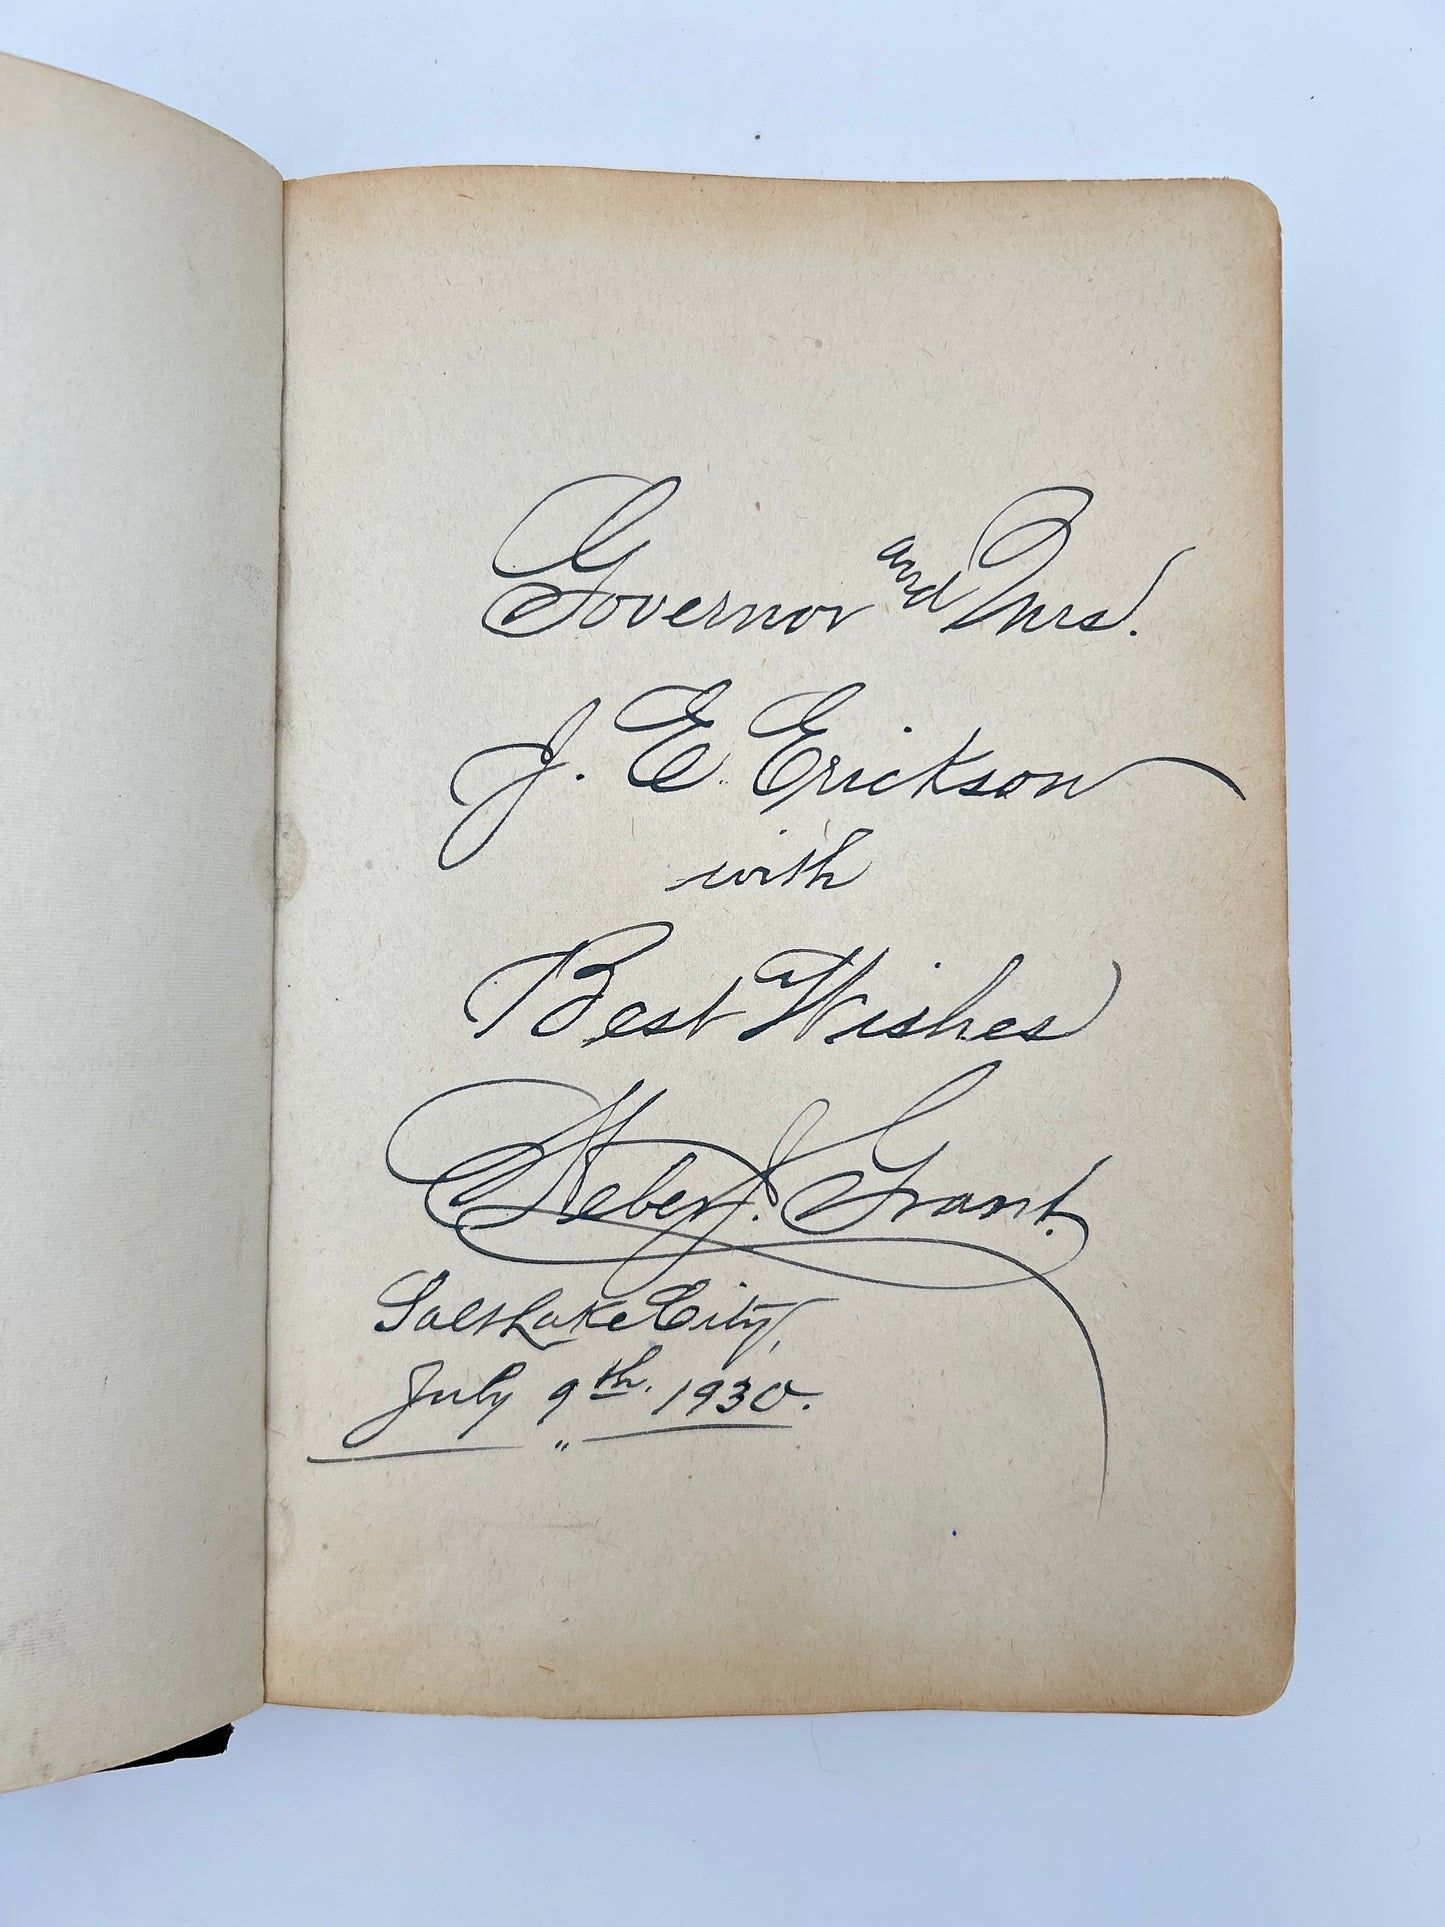 Governor and Mrs.
J. E. Erickson
with
Best Wishes
Heber J. Grant.
Salt Lake City,
July 9th. 1930.